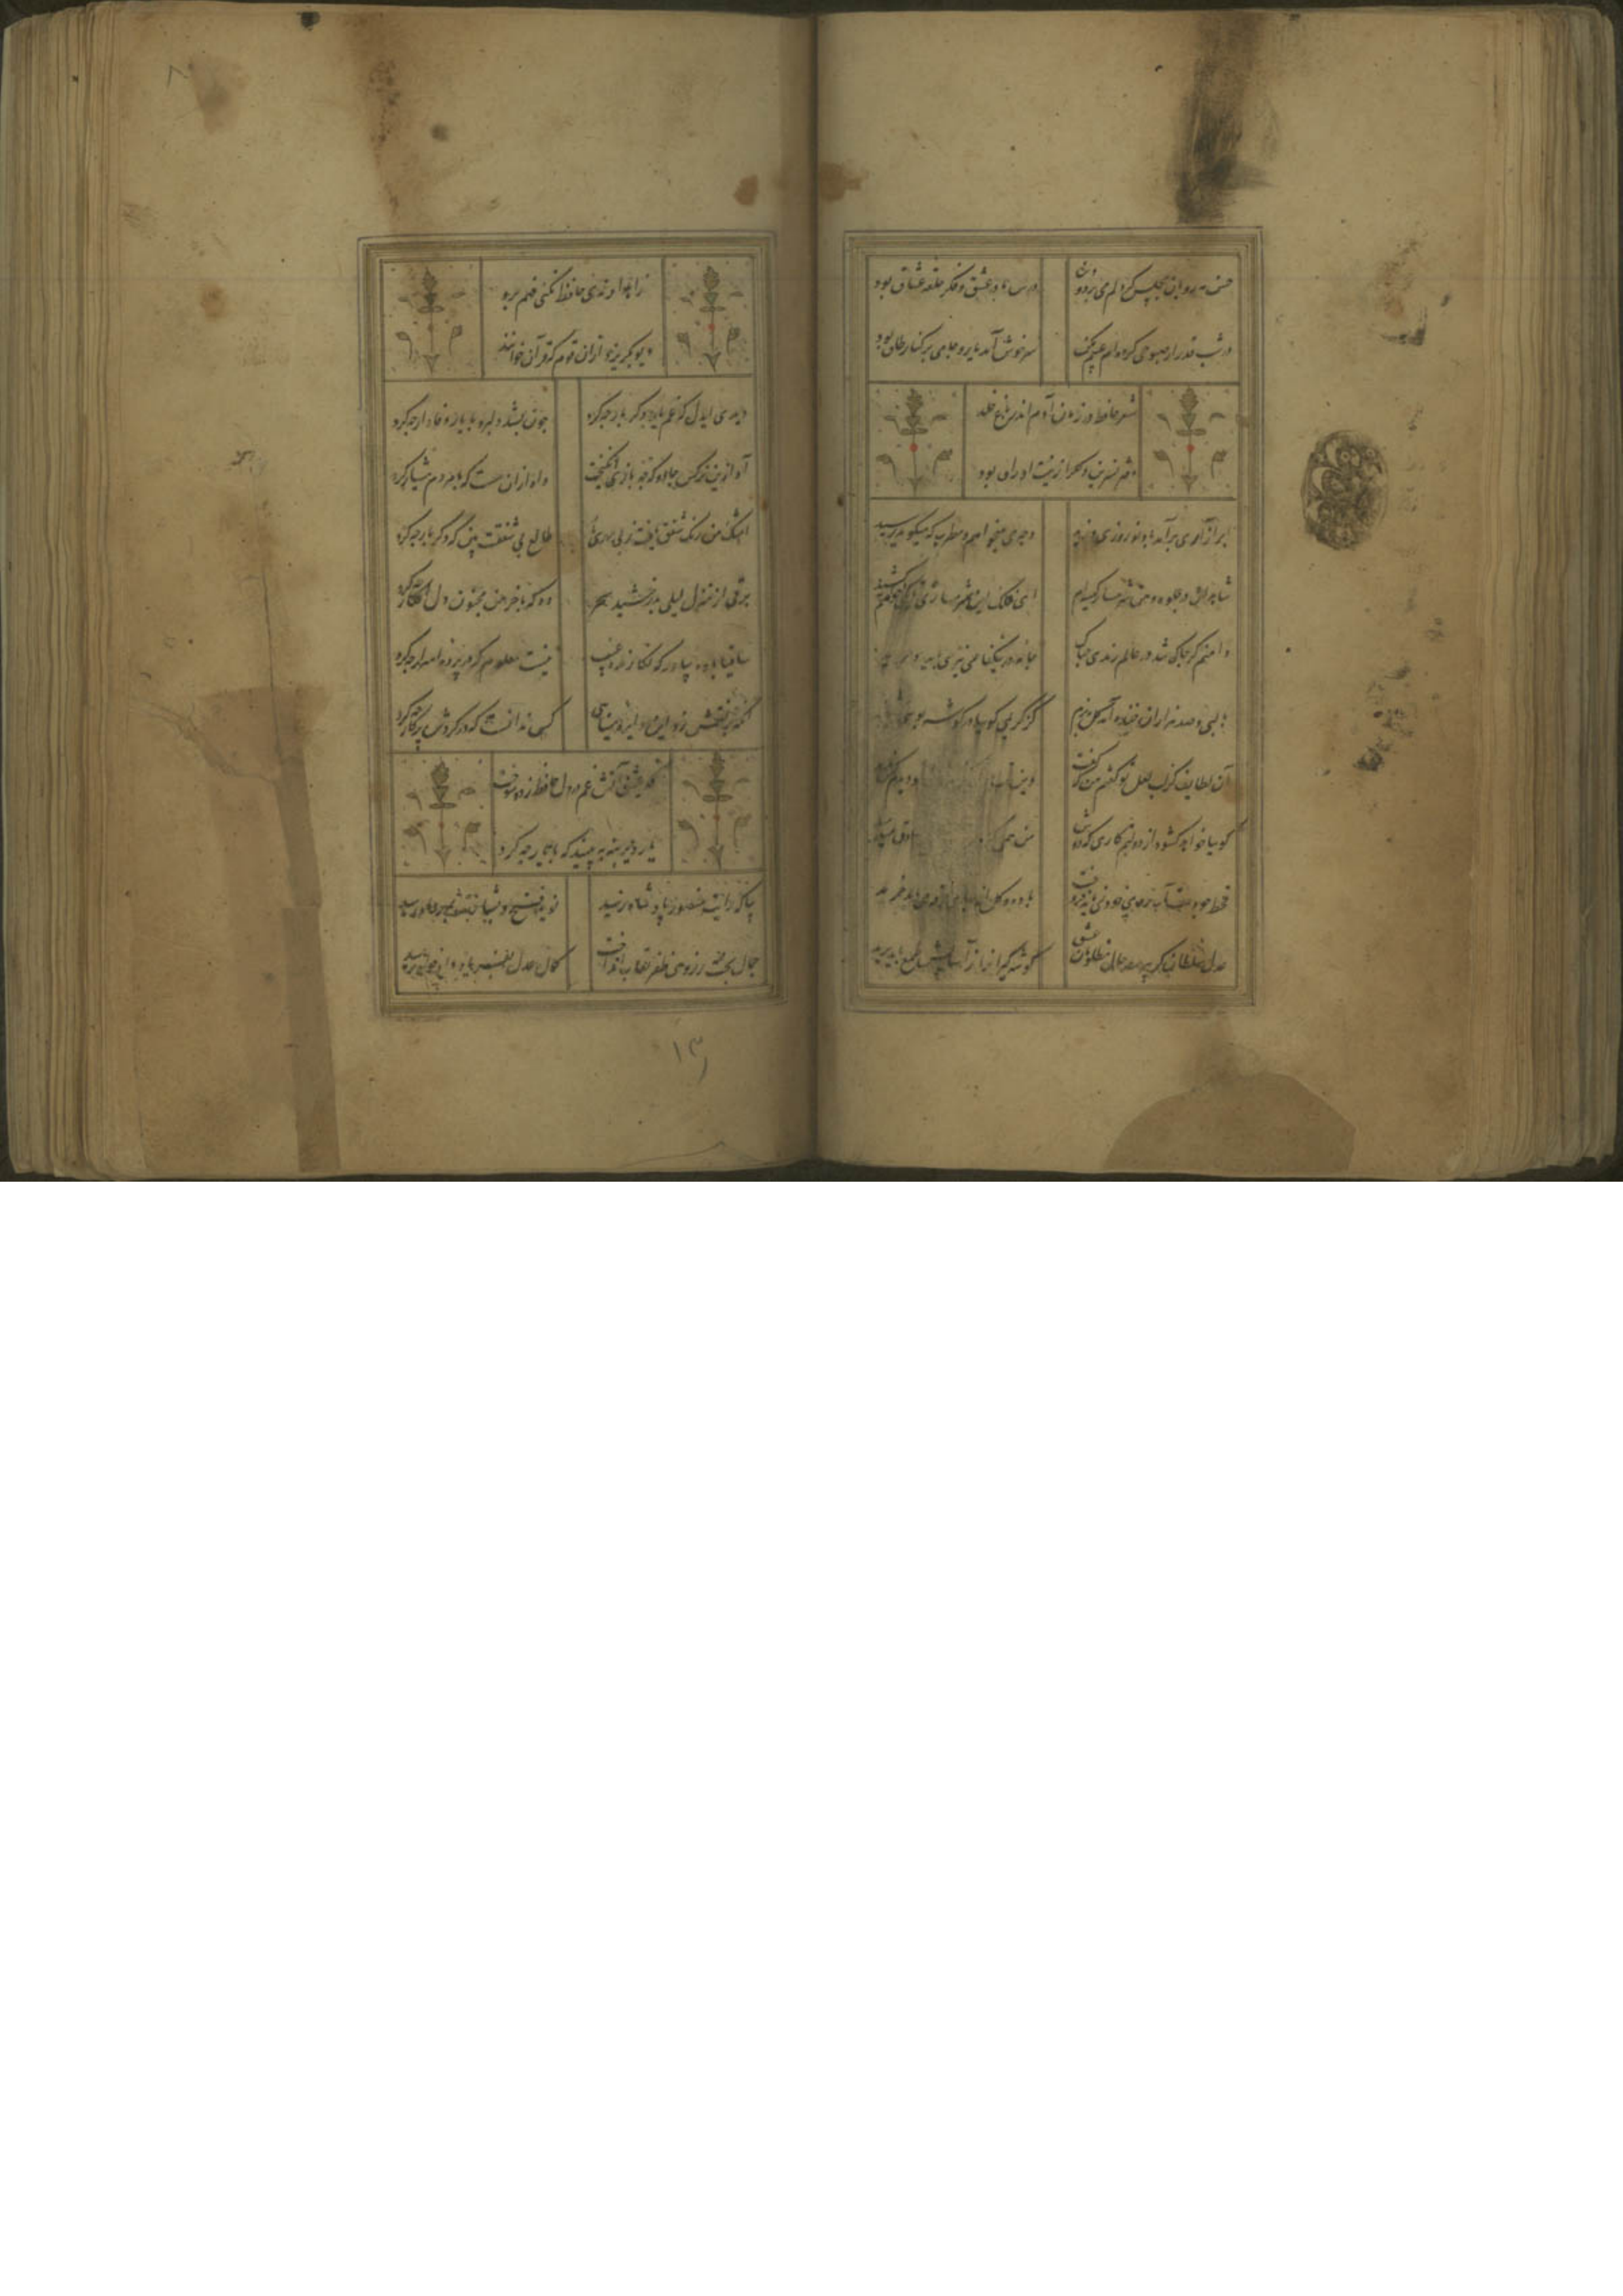 حسن مه رویان مجلس گرچه دل می برد و دین
درس ما در عشق و فکر حلقه عشاق بود
در شب قدر ار صبوحی کرده ام عیبم مکن
سرخوش آمد یار و جامی بر کنار طاق بود
شعر حافظ در زمان آدم اندر باغ خلد
دفتر نسرین و گل را زینت اوراق بود
ابر آزاری برآمد باد نوروزی وزید
وجه می میخواهم و مطرب که میکوید رسید
شاهدان در جلوه و من شرمسار کیسه ام
ای فلک این شرمساری تا بکی خواهم کشید
دامنم کر چاک شد در عالم رندی چه باک
جامه در نیکنامی نیز می باید
با لبی و صد هزاران خنده آمد کل بباغ
از کریمی کوییا در کوشه بویی
آن لطایف کز لب لعل تو کفتم من که کفت
کوییا خواهد کشود از دولتم کاری که دوش
من همی
قحط جودست آب روی خود نمی باید فروخت
باده و کل از بهای خرقه می باید خرید
عدل سلطان کر نپرسد حال مظلومان عشق
کوشه کیران را ز آسایش طمع باید برید
زاهد ار رندی حافظ نکند فهم چه شد
دیو بکریزد از آن قوم که قرآن خوانند
دیدی ای دل که غم یار دکر بار چه کرد
چون بشد دلبر و با یار وفادار چه کرد
آه از این نرکس جادو که چه بازی انکیخت
واه از آن مست که با مردم هشیار چه کرد
اشک من رنک شفق یافت ز بی مهری یار
طالع بی شفقت بین که دکر بار چه کرد
برقی از منزل لیلی بدرخشید سحر
وه که با خرمن مجنون دل افکار چه کرد
ساقیا باده بیاور که نکارنده غیب
نیست معلوم که در پرده اسرار چه کرد
آنکه پر نقش زد این دایره مینایی
کس ندانست که در کردش پرکار چه کرد
برق عشق آتش غم در دل حافظ زد و سوخت
یار دیرینه ببینید که با یار چه کرد
بیا که رایت منصور پادشاه رسید
نوید فتح و بشارت بمهر و ماه رسید
جمال بخت ز روی ظفر نقاب انداخت
کمال عدل بفریاد دادخواه رسید
۱۳